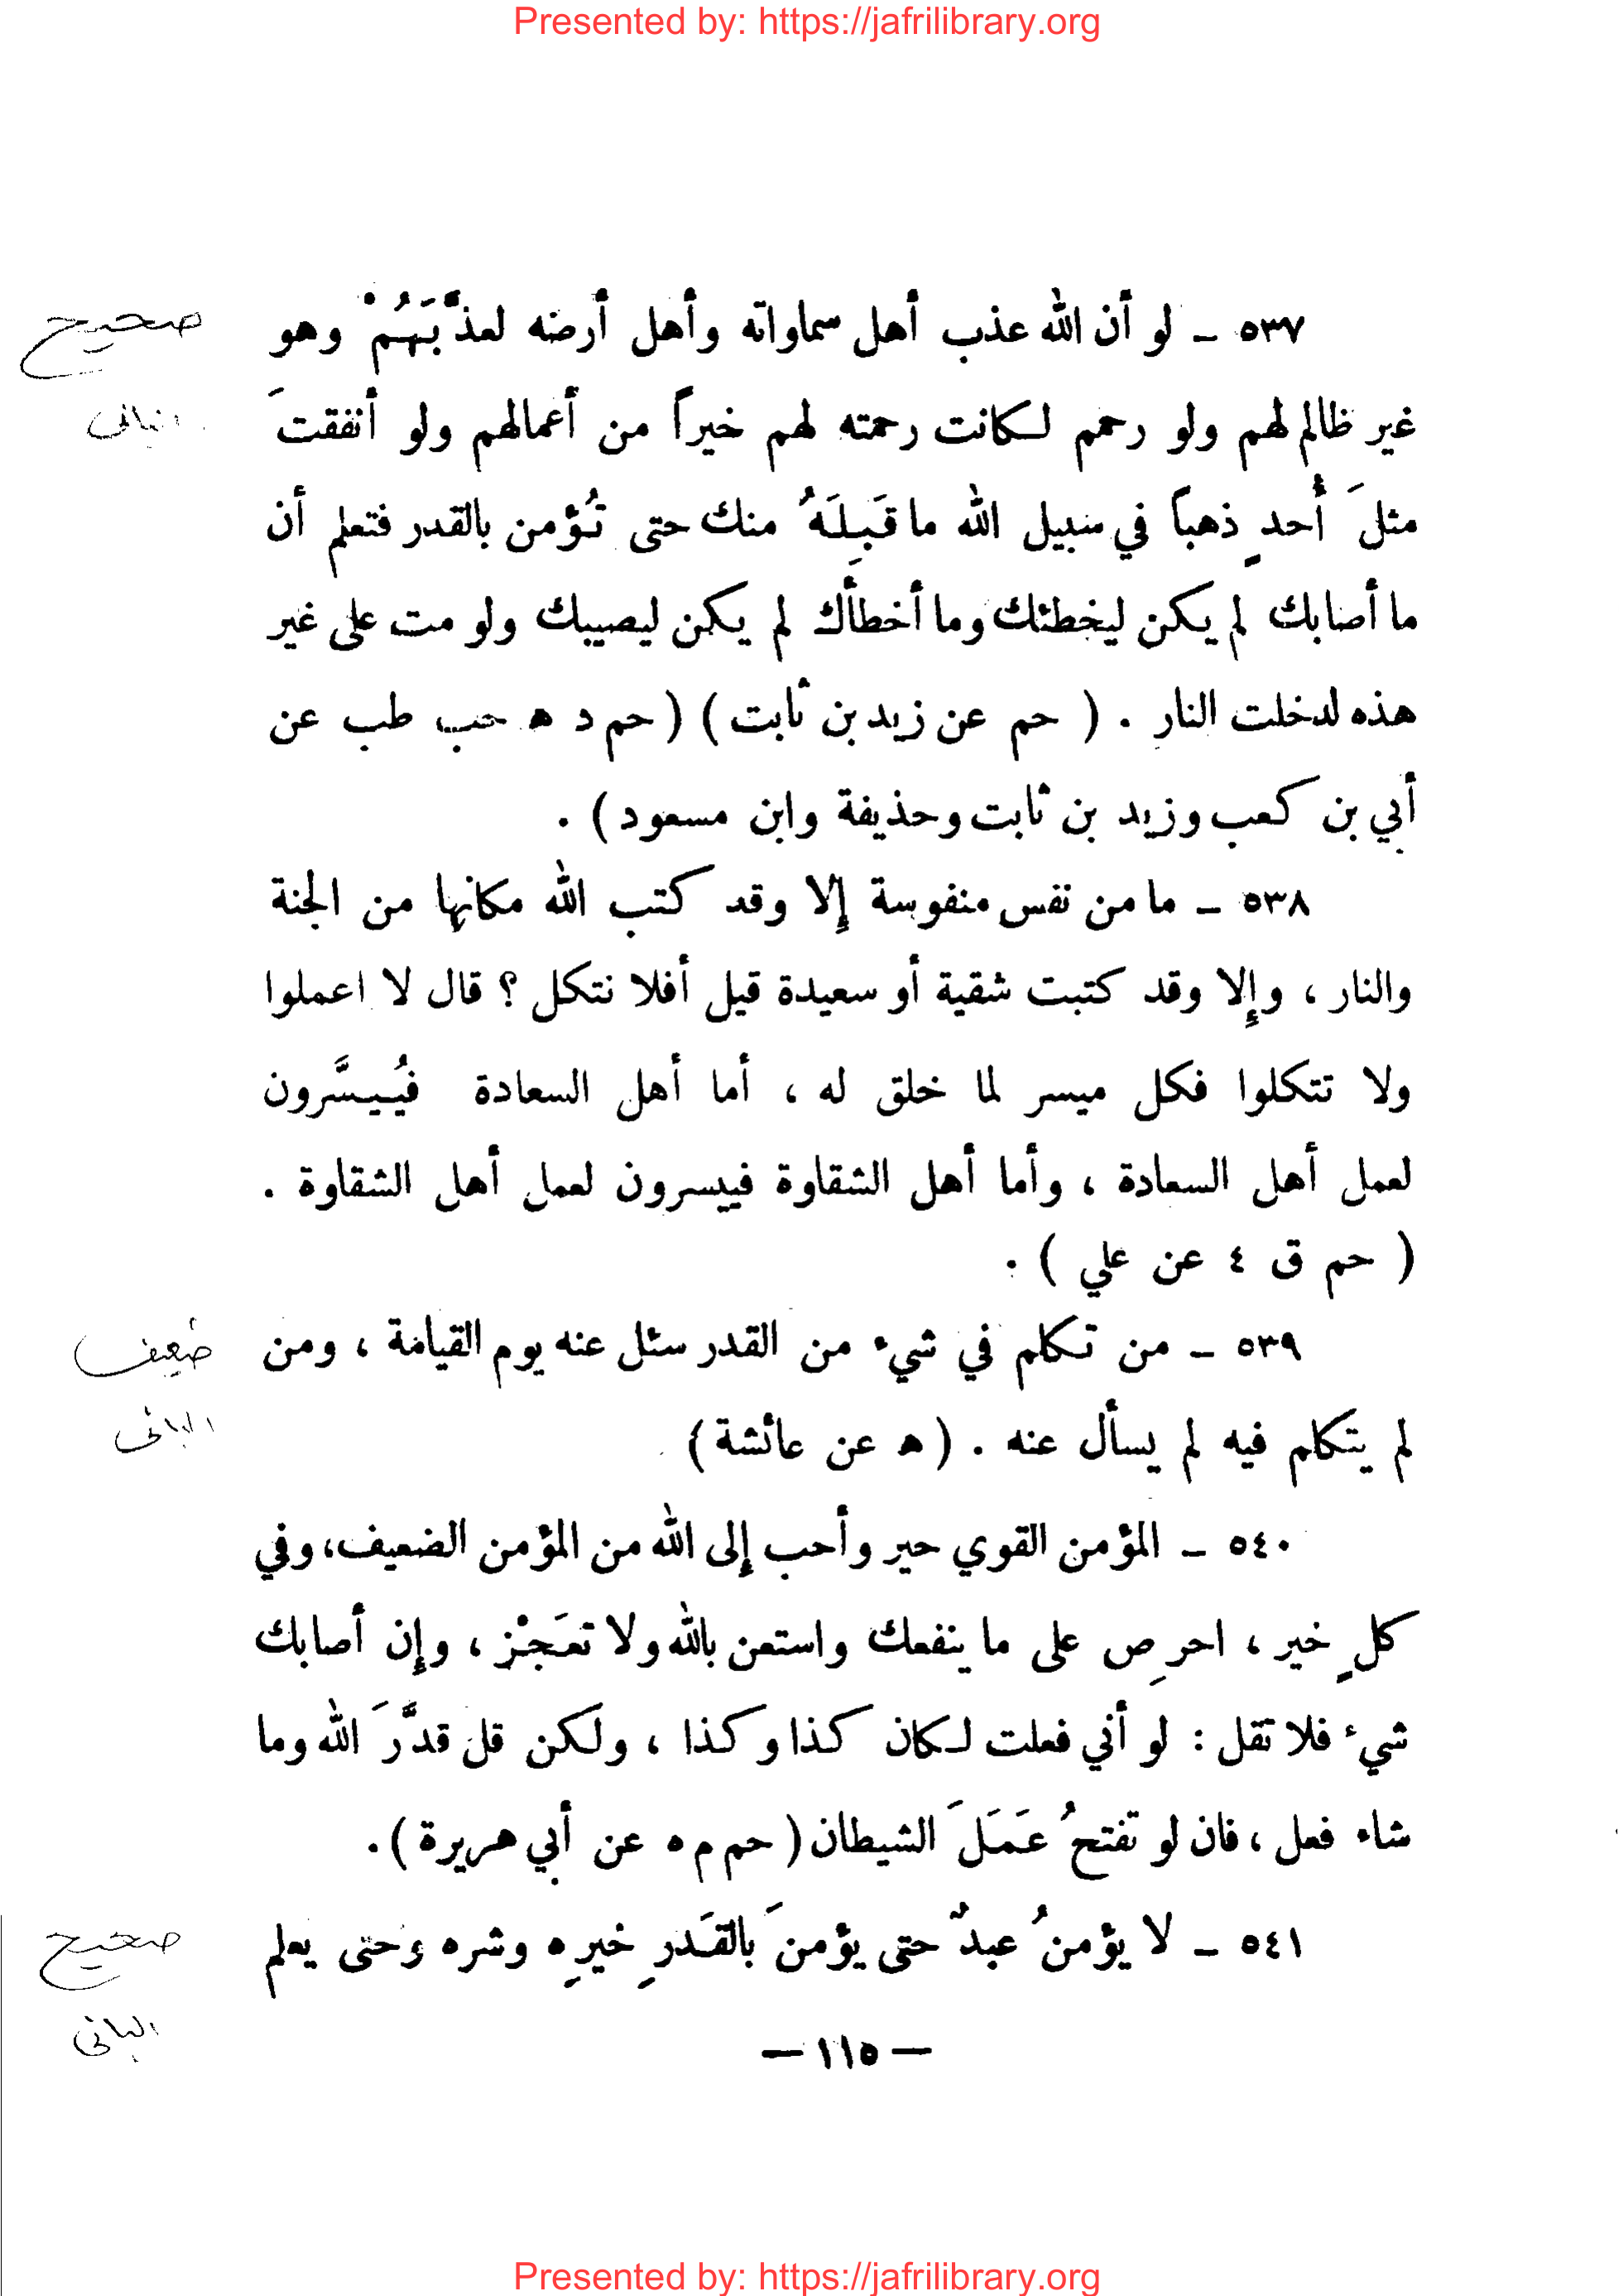 Presented by: https://jafrilibrary.org
٥٣٧ ـ لو أن الله عذب أهل سماواته وأهل أرضه لعذَّبَهُمْ وهو
صحيح
غير ظالم لهم ولو رحمهم لكانت رحمته لهم خيراً من أعمالهم ولو أنفقتَ
البانى
مثلَ أُحدٍ ذهباً في سبيل الله ما قَبِلَهُ منك حتى تُؤمن بالقدر فتعلم أن
ما أصابك لم يكن ليخطئك وما أخطأك لم يكن ليصيبك ولو مت على غير
هذه لدخلت النار . ( حم عن زيد بن ثابت ) ( حم د ه حب طب عن
أبي بن كعب وزيد بن ثابت وحذيفة وابن مسعود ) .
٥٣٨ ـ ما من نفس منفوسة إلا وقد كتب الله مكانها من الجنة
والنار ، وإلا وقد كتبت شقية أو سعيدة قيل أفلا نتكل ؟ قال لا اعملوا
ولا تتكلوا فكل ميسر لما خلق له ، أما أهل السعادة فيُيسَّرون
لعمل أهل السعادة ، وأما أهل الشقاوة فييسرون لعمل أهل الشقاوة .
( حم ق ٤ عن علي ) .
٥٣٩ ـ من تكلم في شيء من القدر سئل عنه يوم القيامة ، ومن
ضعيف
لم يتكلم فيه لم يسأل عنه . ( ه عن عائشة )
البانى
٥٤٠ ـ المؤمن القوي حير وأحب إلى الله من المؤمن الضعيف، وفي
كلٍ خير ، احرِص على ما ينفعك واستعن بالله ولا تعَجْز ، وإن أصابك
شيء فلا تقل : لو أني فعلت لكان كذا وكذا ، ولكن قل قدَّرَ الله وما
شاء فعل ، فان لو تفتحُ عَمَلَ الشيطان ( حم م ه عن أبي هريرة ) .
٥٤١ ـ لا يؤمنُ عبدٌ حتى يؤمنَ بالقَدرِ خيرِه وشره وحتى يعلم
صحيح
البانى
— ١١٥ —
Presented by: https://jafrilibrary.org